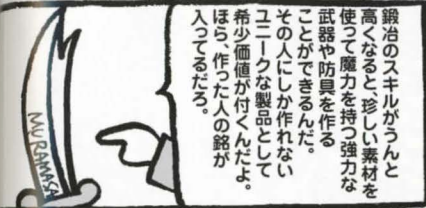 鍛冶のスキルがうんと
高くなると、珍しい素材を
使って魔力を持つ強力な
武器や防具を作る
ことができるんだ。
その人にしか作れない
ユニークな製品として
希少価値が付くんだよ。
ほら、作った人の銘が
入ってるだろ。
MURAMASA